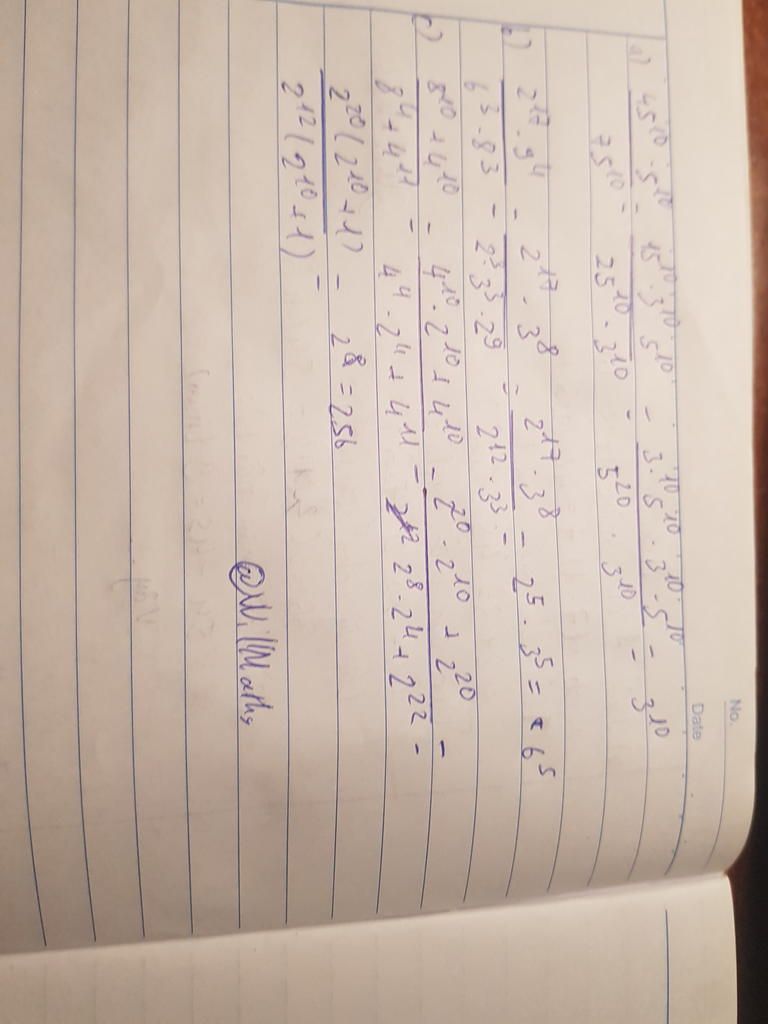 No.
Date
a) 45^10 · 5^10 / 75^10 = 15^10 · 3^10 · 5^10 / 25^10 · 3^10 = 3^10 · 5^10 · 3^10 · 5^10 / 5^20 · 3^10 = 3^10
b) 2^17 · 9^4 / 6^3 · 8^3 = 2^17 · 3^8 / 2^3 · 3^3 · 2^9 = 2^17 · 3^8 / 2^12 · 3^3 = 2^5 · 3^5 = 6^5
c) 8^10 + 4^10 / 8^4 + 4^11 = 4^10 · 2^10 + 4^10 / 4^4 · 2^4 + 4^11 = 2^20 · 2^10 + 2^20 / 2^8 · 2^4 + 2^22 =
2^20 (2^10 + 1) / 2^12 (2^10 + 1) = 2^8 = 256
@WillMaths